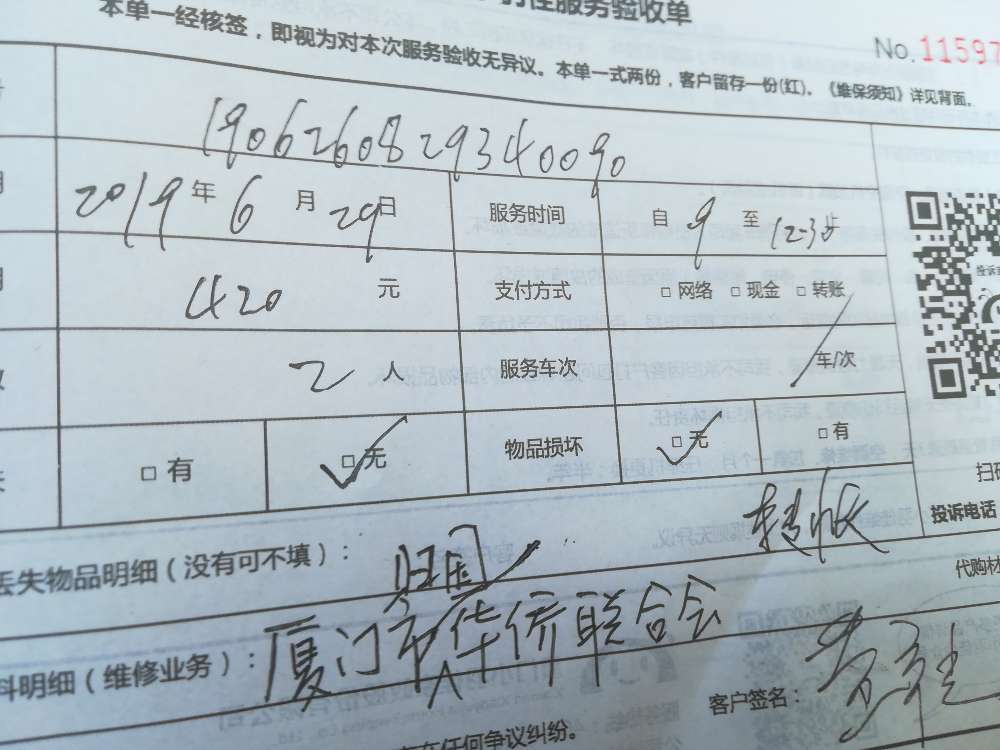 性服务验收单
本单一经核签，即视为对本次服务验收无异议。本单一式两份，客户留存一份(红)。《维保须知》详见背面。
No. 11597
1906260829340090
2019 年 6 月 29 日 服务时间 自 9 至 12:30
420 元 支付方式 □ 网络 □ 现金 □ 转账
2 人 服务车次 / 车/次
□ 有 □ 无 物品损坏 □ 无 □ 有
扫
投诉电话
丢失物品明细（没有可不填）：
归国
转账
代购材
料明细（维修业务）：厦门市华侨联合会
客户签名：
存在任何争议纠纷。